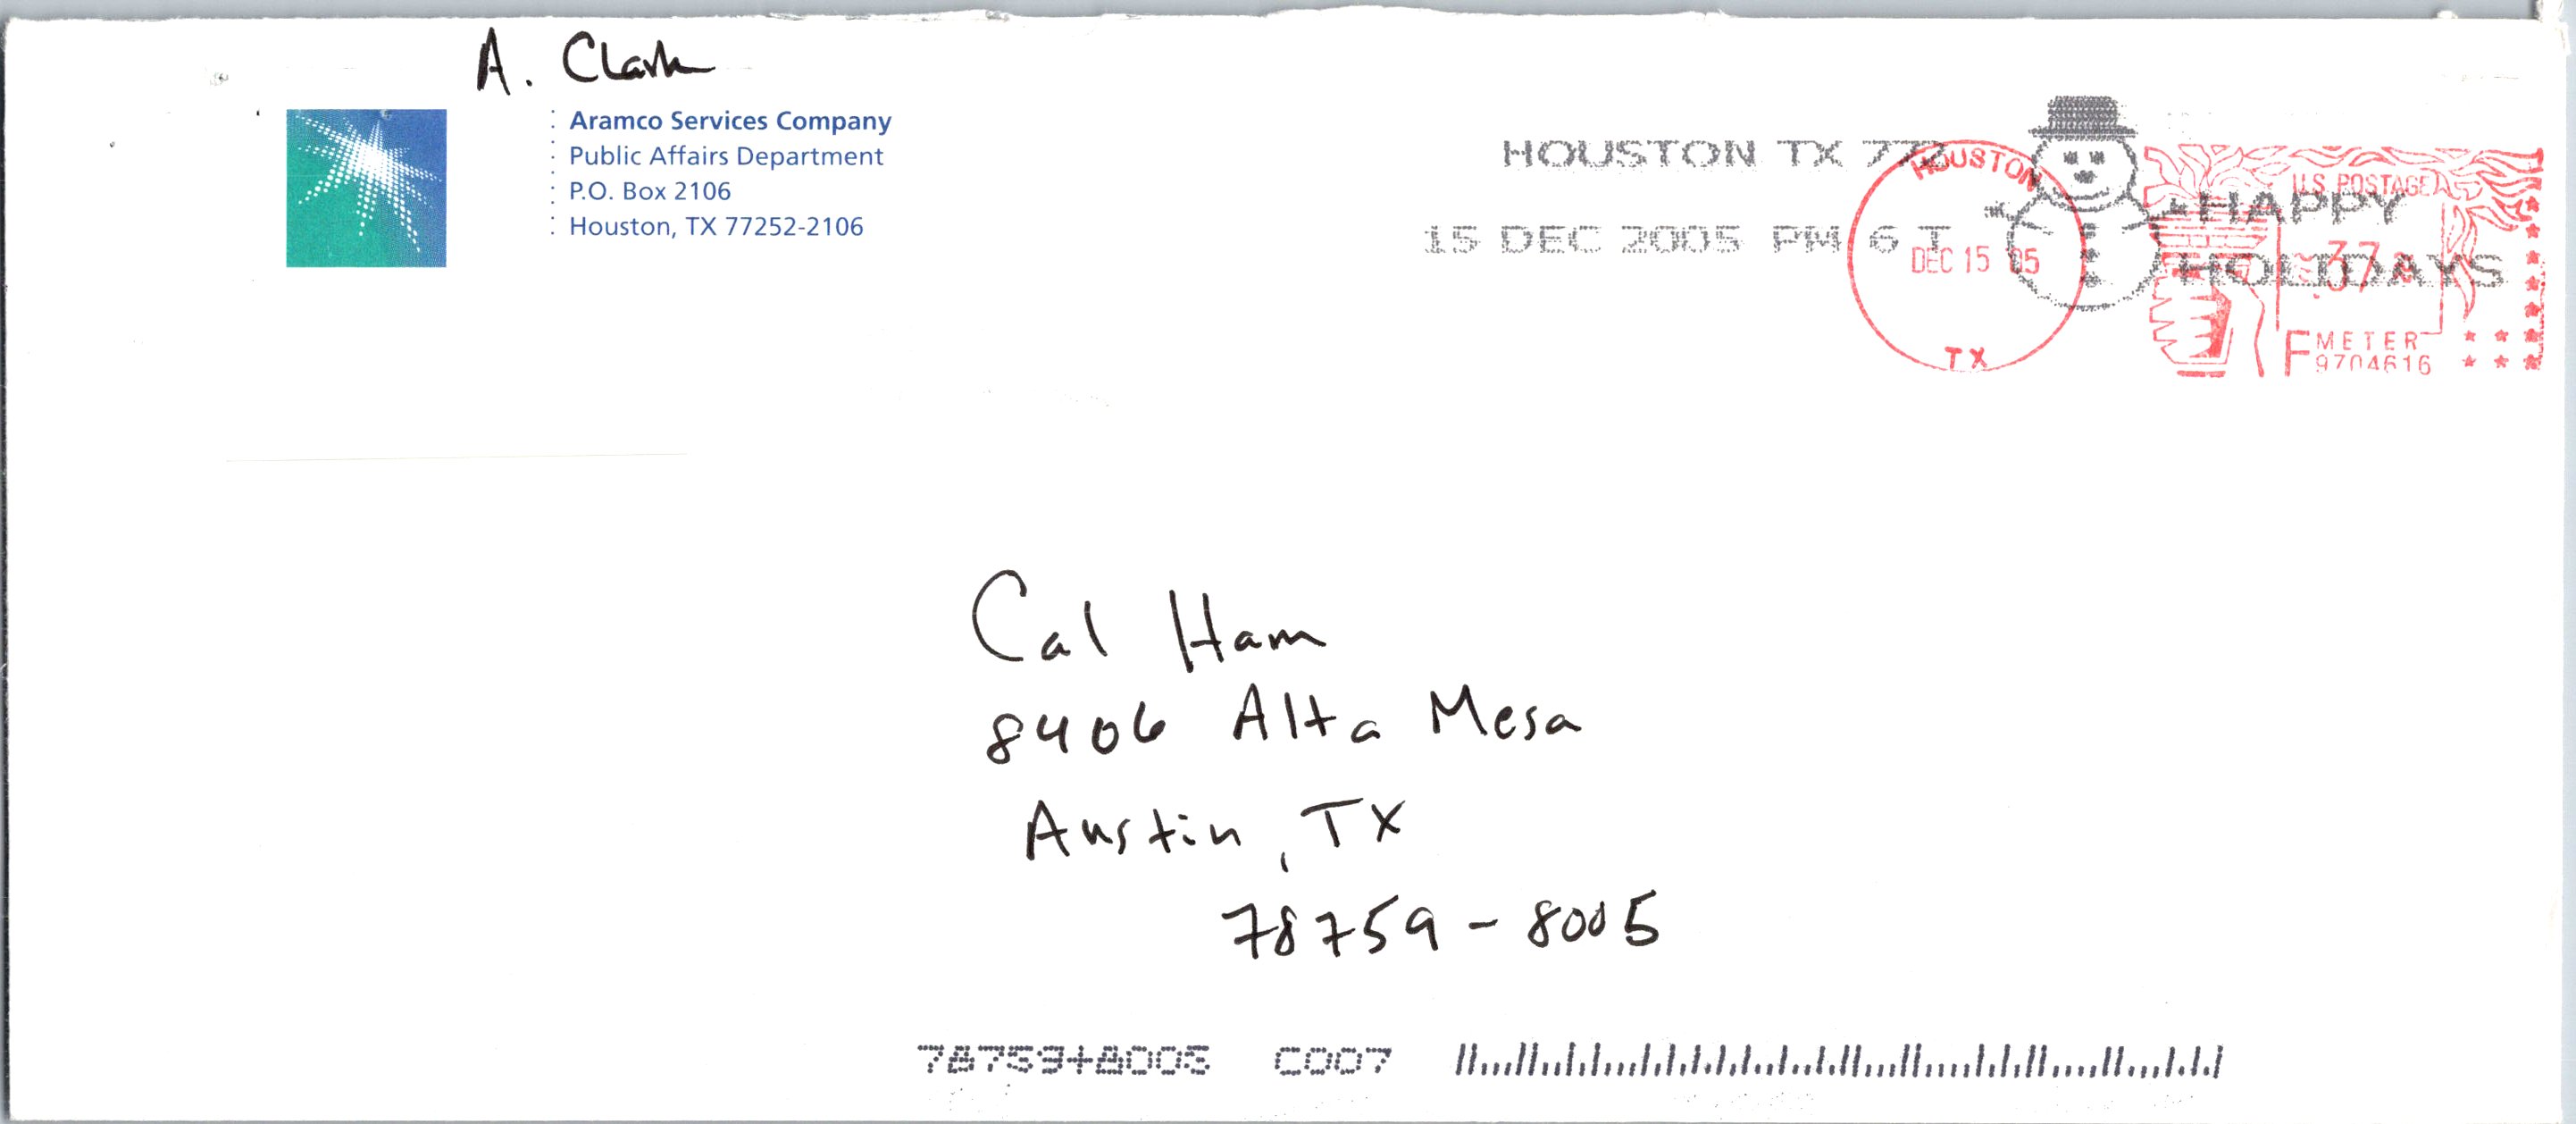 A. Clark
Aramco Services Company
Public Affairs Department
P.O. Box 2106
Houston, TX 77252-2106
HOUSTON TX 772
15 DEC 2005 PM 6 T
HAPPY
HOLIDAYS
HOUSTON
DEC 15 '05
TX
U.S. POSTAGE
.37
F METER
9704616
Cal Ham
8406 Alta Mesa
Austin, TX
78759-8005
78759+8005 C007